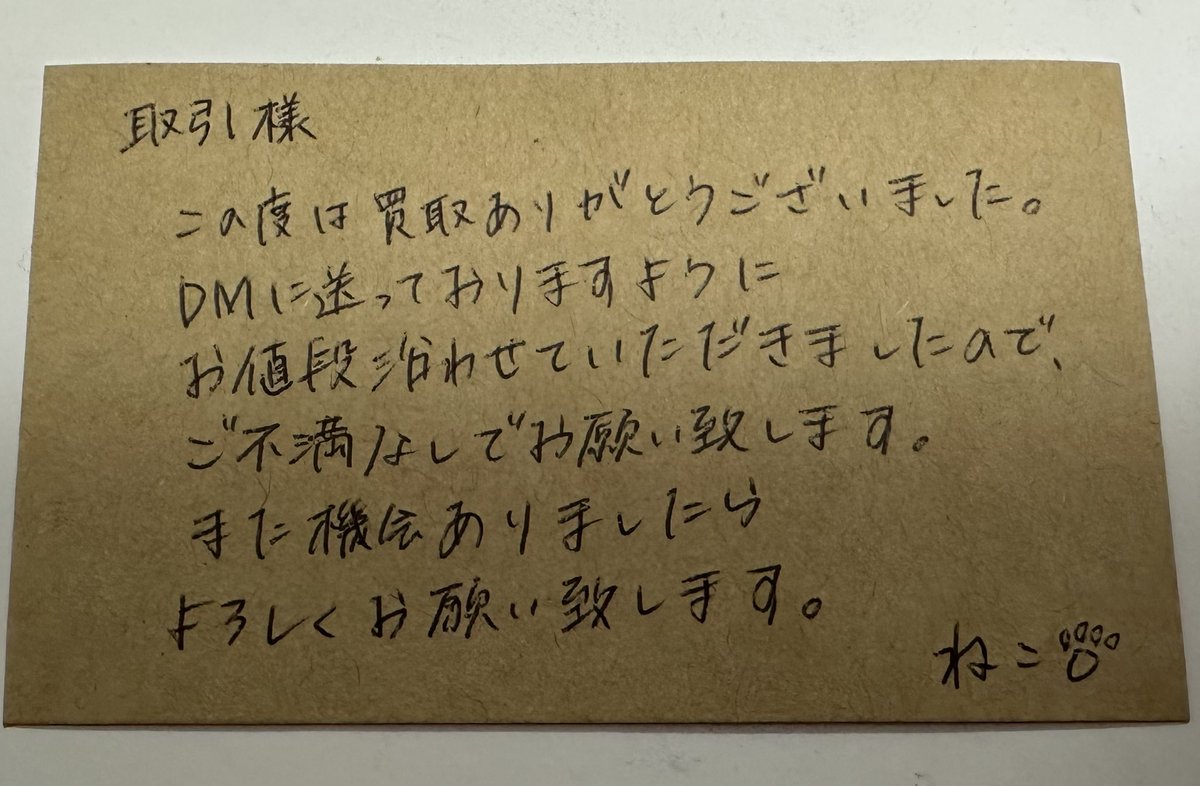 取引様
この度は買取ありがとうございました。
DMに送っておりますように
お値段沿わせていただきましたので、
ご不満なしでお願い致します。
また機会ありましたら
よろしくお願い致します。
ねこ